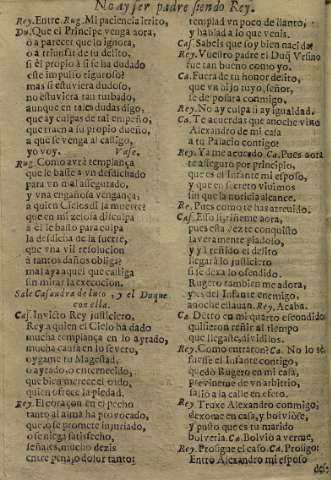 No ay ser padre siendo Rey.
Rey. Entre. Rug. Mi paciencia irrito,
Du. Que el Principe venga aora,
ò a parecer que lo ignora,
o a triunfar de tu delito.
si èl propio à si se ha dudado
este impulso riguroso?
mas si estuviera dudoso,
no estuviera tan turbado,
aunque en tales dudas digo,
que ay culpas de tal empeño,
que traen a su propio dueño,
a que se venga al castigo,
yo voy. Vase.
Rug. Como avrà templança
que le baste a vn desdichado
para vn mal assegurado,
y vna engañosa vengança;
a quien Cielos diò la muerte?
que en mi zelosa disculpa
à èl le bastò para culpa
la desdicha de su suerte,
que vna vil resolucion
à tantos daños obliga?
mal aya aquel que castiga
sin mirar la execucion.
Sale Casandra de luto, y el Duque
con ella.
Cas. Invicto Rey justiciero,
Rey a quien el Cielo ha dado
mucha templança en lo ayrado,
mucha causa en lo severo,
oygame tu Magestad,
o ayrado, o enternecido,
que bien merece el oido,
quien ofrece la piedad.
Rey. El coraçon en el pecho
tanto al alma ha provocado,
que, ò se promete injuriado,
o se niega satisfecho,
señales, mucho dezis
entre pena, y dolor tanto;
templad vn poco de llanto,
y hablad a lo que venis.
Cas. Sabeis que soy bien nacida?
Rey. Vuestro padre el Duq Vrsino
fue tan bueno como yo.
Ca. Fuera de tu honor delito,
que vn hijo tuyo, señor,
se desposara conmigo,
Rey. No ay culpa si ay igualdad.
Ca. Te acuerdas que anoche vino
Alexandro de mi casa
a tu Palacio contigo?
Rey. Ya me acuerdo Ca. Pues aora
te asseguro por principio,
que es el Infante mi esposo,
y que en secreto vivimos
sin que la noticia alcance.
Re. Pues como te has atrevido.
Cas. Esso riñeme aora,
pues esta vez te conquisto
severamente piadoso,
y ya reñido el delito
llegarà lo justiciero.
si se dexa lo ofendido.
Rugero tambien me adora,
y es del Infante enemigo,
anoche estauan. Rey. Acaba.
Ca. Dentro en mi quarto escondido
quisieron reñir al tiempo
que llegaste, dividilos.
Rey. Como entraron? Ca. No lo sè
fuesse el Infante contigo,
quedò Rugero en mi casa,
previneme de vn arbitrio,
salio a la calle en efeto.
Rey. Truxe Alexandro conmigo,
dexome en casa, y bolviose,
y puesto que es tu marido
bolveria. Ca. Bolviò a verme,
Rey. Prosigue el caso. Ca. Prosigo:
Entrò Alexandro mi esposo